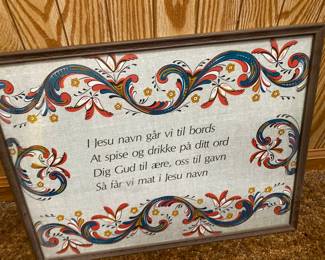 I Jesu navn går vi til bords
At spise og drikke på ditt ord
Dig Gud til ære, oss til gavn
Så får vi mat i Jesu navn